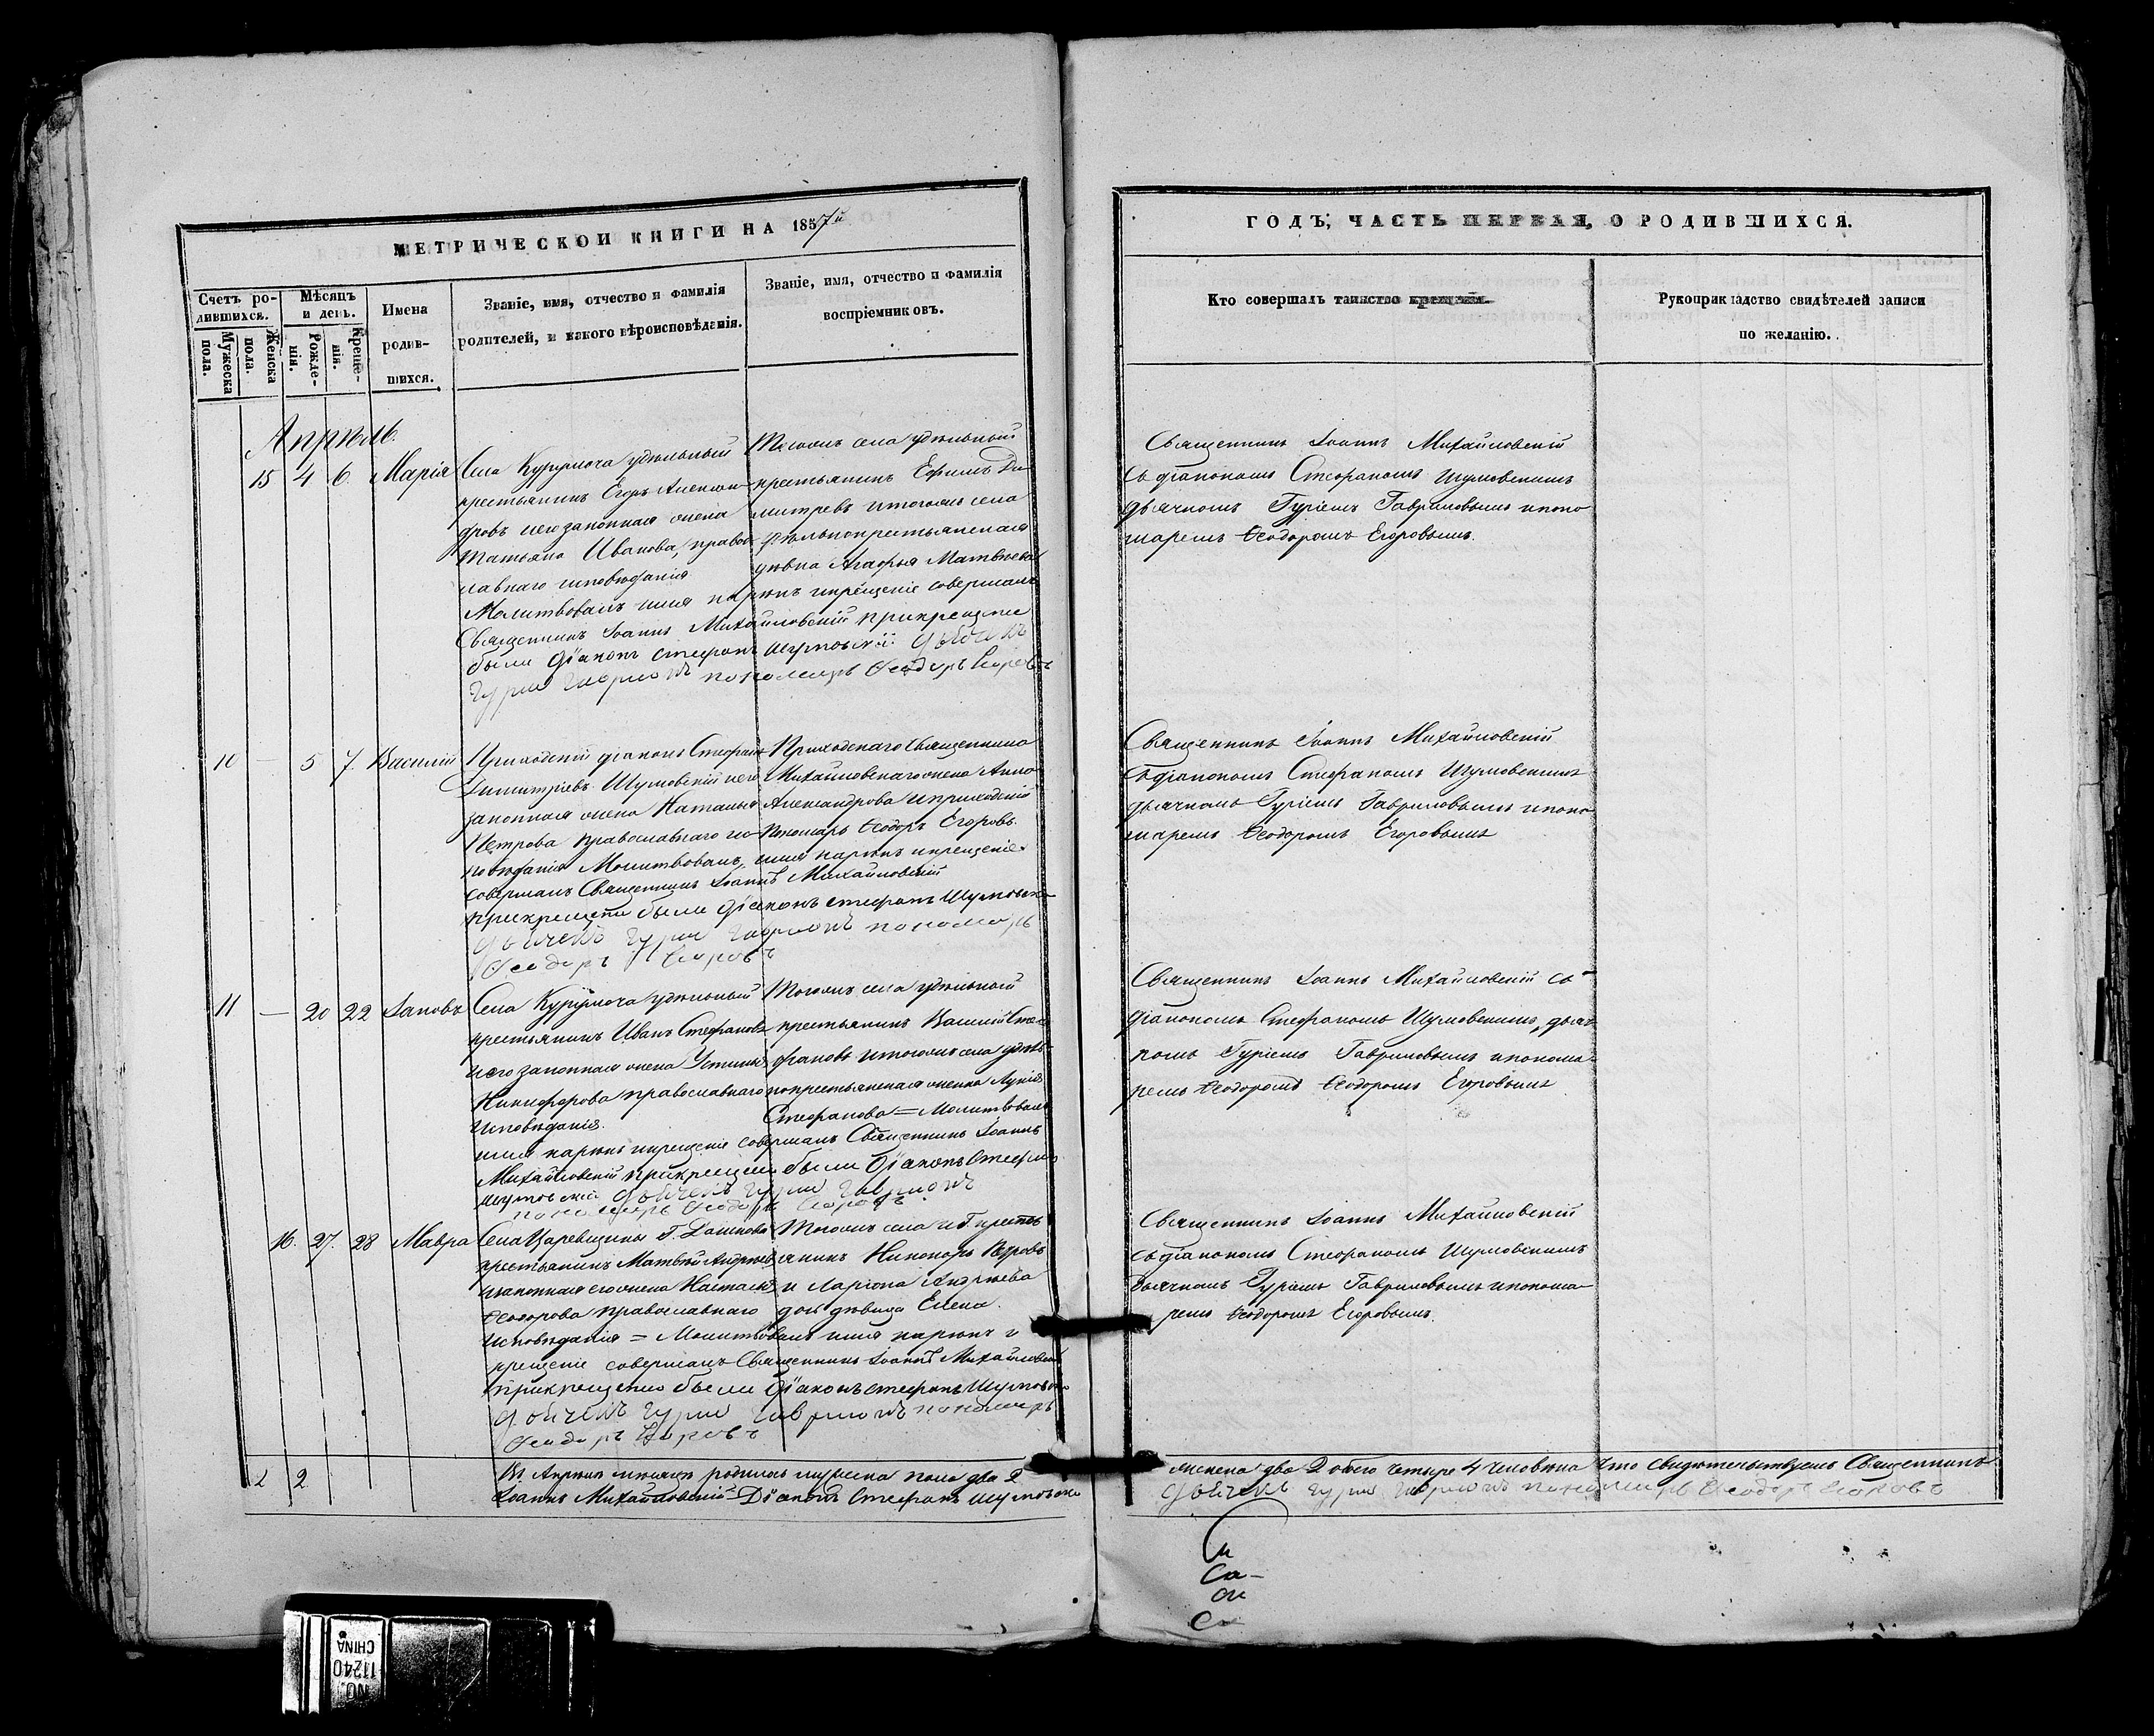 МЕТРИЧЕСКОЙ КНИГИ НА 1857й
ГОДЪ, ЧАСТЬ ПЕРВАЯ, О РОДИВШИХСЯ.
Счетъ ро-
дившихся.
Мужеска
пола.
Женска
пола.
Мѣсяцъ
и день.
Рожде-
нія.
Креще-
нія.
Имена
родив-
шихся.
Званіе, имя, отчество и фамилія
родителей, и какого вѣроисповѣданія.
Званіе, имя, отчество и фамилія
воспріемниковъ.
Кто совершалъ таинство крещенія.
Рукоприкладство свидѣтелей записи
по желанію.
Апрѣль.
15 4 6. Марія
Села Курумоча удѣльный
крестьянинъ Егоръ Алексан-
дровъ и его законная жена
Татьяна Иванова, правос-
лавнаго исповѣданія
Тогожъ села удѣльный
крестьянинъ Ефимъ Ди-
митревъ и тогожъ села
удѣльнокрестьянская
дѣвка Агафья Матвѣева
Молитвовалъ имя нарекъ и крещеніе совершалъ
Священникъ Іоаннъ Михайловскій при крещеніи
были Діаконъ Стефанъ Шумовскій Дьячекъ
Гурій Гавриловъ пономарь Феодоръ Егоровъ
Священникъ Іоаннъ Михайловскій
съ діакономъ Стефаномъ Шумовскимъ
дьячкомъ Гуріемъ Гавриловымъ и поно
маремъ Ѳеодоромъ Егоровымъ.
10 — 5 7. Василій
Приходскій діаконъ Стефанъ
Димитріевъ Шумовскій и его
законная жена Наталья
Петрова православнаго ис-
Приходскаго Священника
Михайловскаго жена Анна
Александрова и приходскій
Пономарь Ѳеодоръ Егоровъ.
повѣданія Молитвовалъ, имя нарекъ и крещеніе
совершалъ Священникъ Іоаннъ Михайловскій
при крещеніи были Діаконъ Стефанъ Шумовск
Дьячекъ Гурій Гавриловъ пономарь
Феодоръ Егоровъ
Священникъ Іоаннъ Михайловскій
съ діакономъ Стефаномъ Шумовскимъ
дьячкомъ Гуріемъ Гавриловымъ и поно
маремъ Ѳеодоромъ Егоровымъ
11 — 20 22 Іаковъ
Села Курумоча удѣльный
крестьянинъ Иванъ Стефановъ
и его законная жена Устинья
Никифорова православнаго
Исповѣданія.
Тогожъ села удѣльный
крестьянинъ Василій Сте
фановъ и тогожъ села удѣль-
нокрестьянская женка Лукія
Стефанова = Молитвовалъ
имя нарекъ и крещеніе совершалъ Священникъ Іоаннъ
Михайловскій при крещеніи были Діаконъ Стефанъ
Шумовскій Дьячекъ Гурій Гавриловъ
пономарь Феодоръ Егоровъ
Священникъ Іоаннъ Михайловскій съ
діакономъ Стефаномъ Шумовскимъ, дьяч
комъ Гуріемъ Гавриловымъ и понома-
ремъ Ѳеодоромъ Ѳеодоромъ Егоровымъ
16. 27. 28 Мавра
Села Царевщины Г. Дашкова
крестьянинъ Матвѣй Андреевъ
и законная его жена Наталья
Ѳеодорова православнаго
Тогожъ села и Г. кресть
янинъ Никоноръ Петровъ
и Ларіона Андреева
дочь дѣвица Елена.
Исповѣданія = Молитвовалъ имя нарекъ и
крещеніе совершалъ Священникъ Іоаннъ Михайловскій
при крещеніи были Діаконъ Стефанъ Шумовск
Дьячекъ Гурій Гавриловъ пономарь
Феодоръ Егоровъ
Священникъ Іоаннъ Михайловскій
съ діакономъ Стефаномъ Шумовскимъ
дьячкомъ Гуріемъ Гавриловымъ и понома-
ремъ Ѳеодоромъ Егоровымъ.
2 2 Въ Апрѣлѣ мѣсяцѣ родилось мужеска пола два 2
женска два 2 обоего четыре 4 человѣка Что свидѣтельствуемъ Священникъ
Іоаннъ Михайловскій Діаконъ Стефанъ Шумовск
Дьячекъ Гурій Гавриловъ пономарь Феодоръ Егоровъ
NO.
11240
CHINA